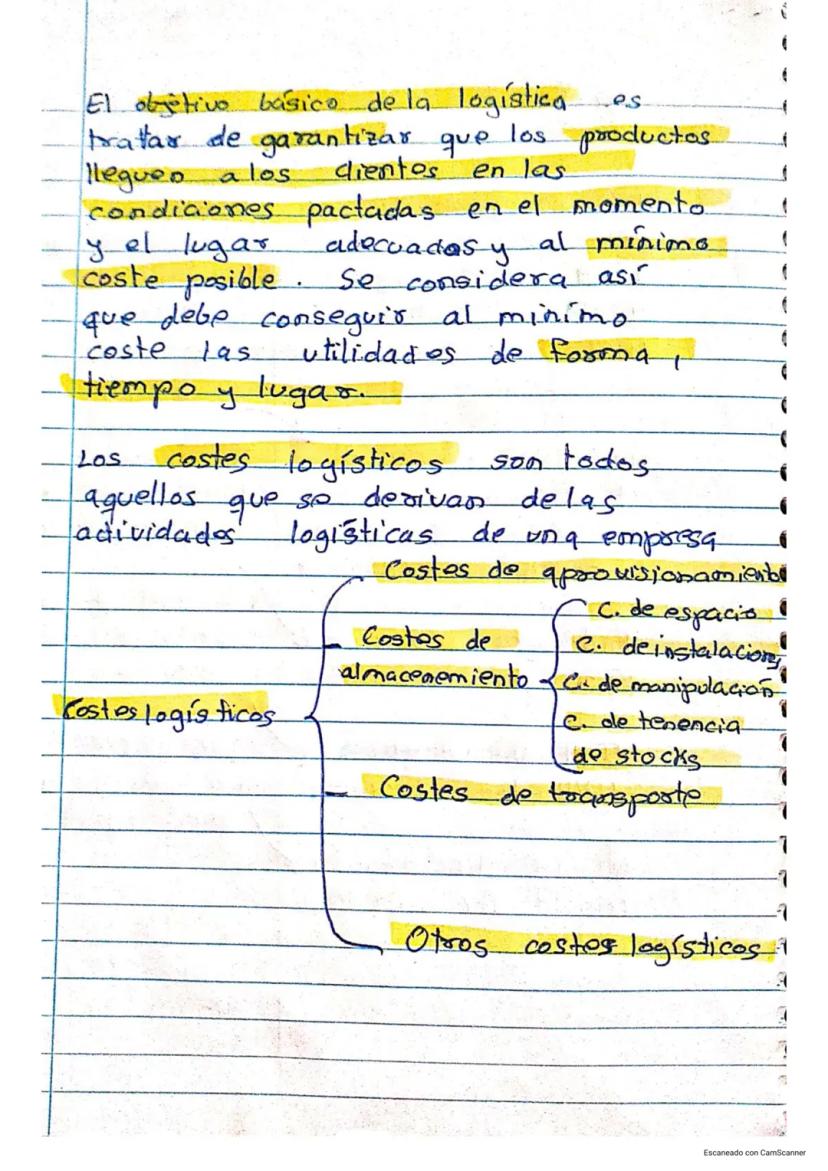 El objetivo básico de la logística es
tratar de garantizar que los productos
lleguen a los clientes en las
condiciones pactadas en el momento
y el lugar adecuados y al mínimo
coste posible. Se considera así
que debe conseguir al mínimo
coste las utilidades de forma,
tiempo y lugar.
Los costes logísticos son todos
aquellos que se derivan de las
actividades logísticas de una empresa
Costes de aprovisionamiento
C. de espacio
Costes de
C. de instalaciones
almacenemiento
C. de manipulación
Costes logísticos
C. de tenencia
de stocks
Costes de transporte
Otros costes logísticos
Escaneado con CamScanner